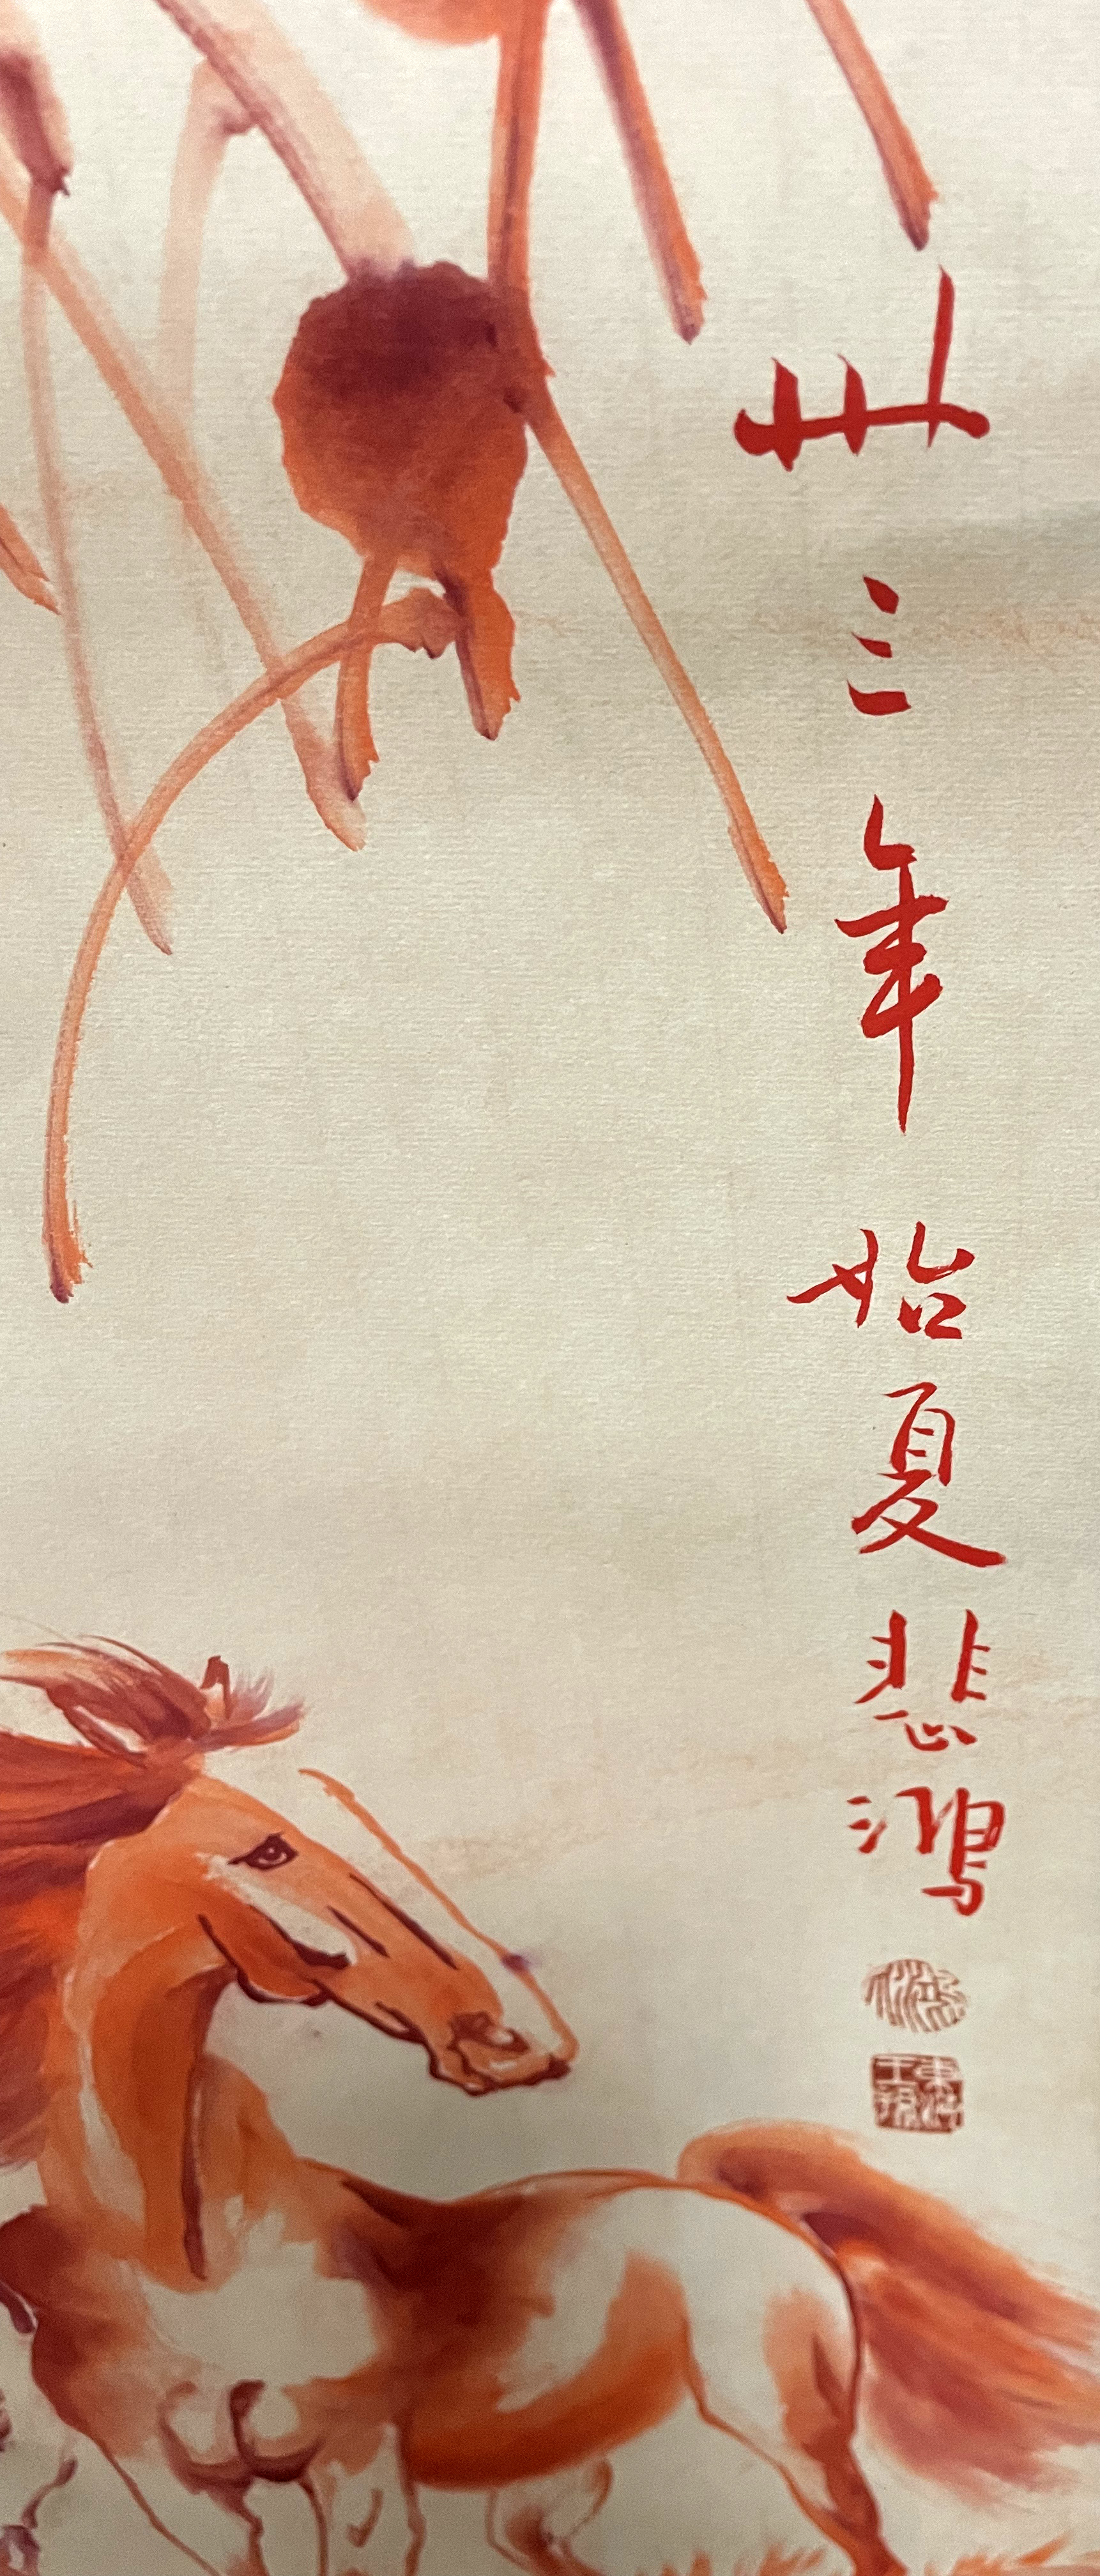 卅三年始夏悲鸿